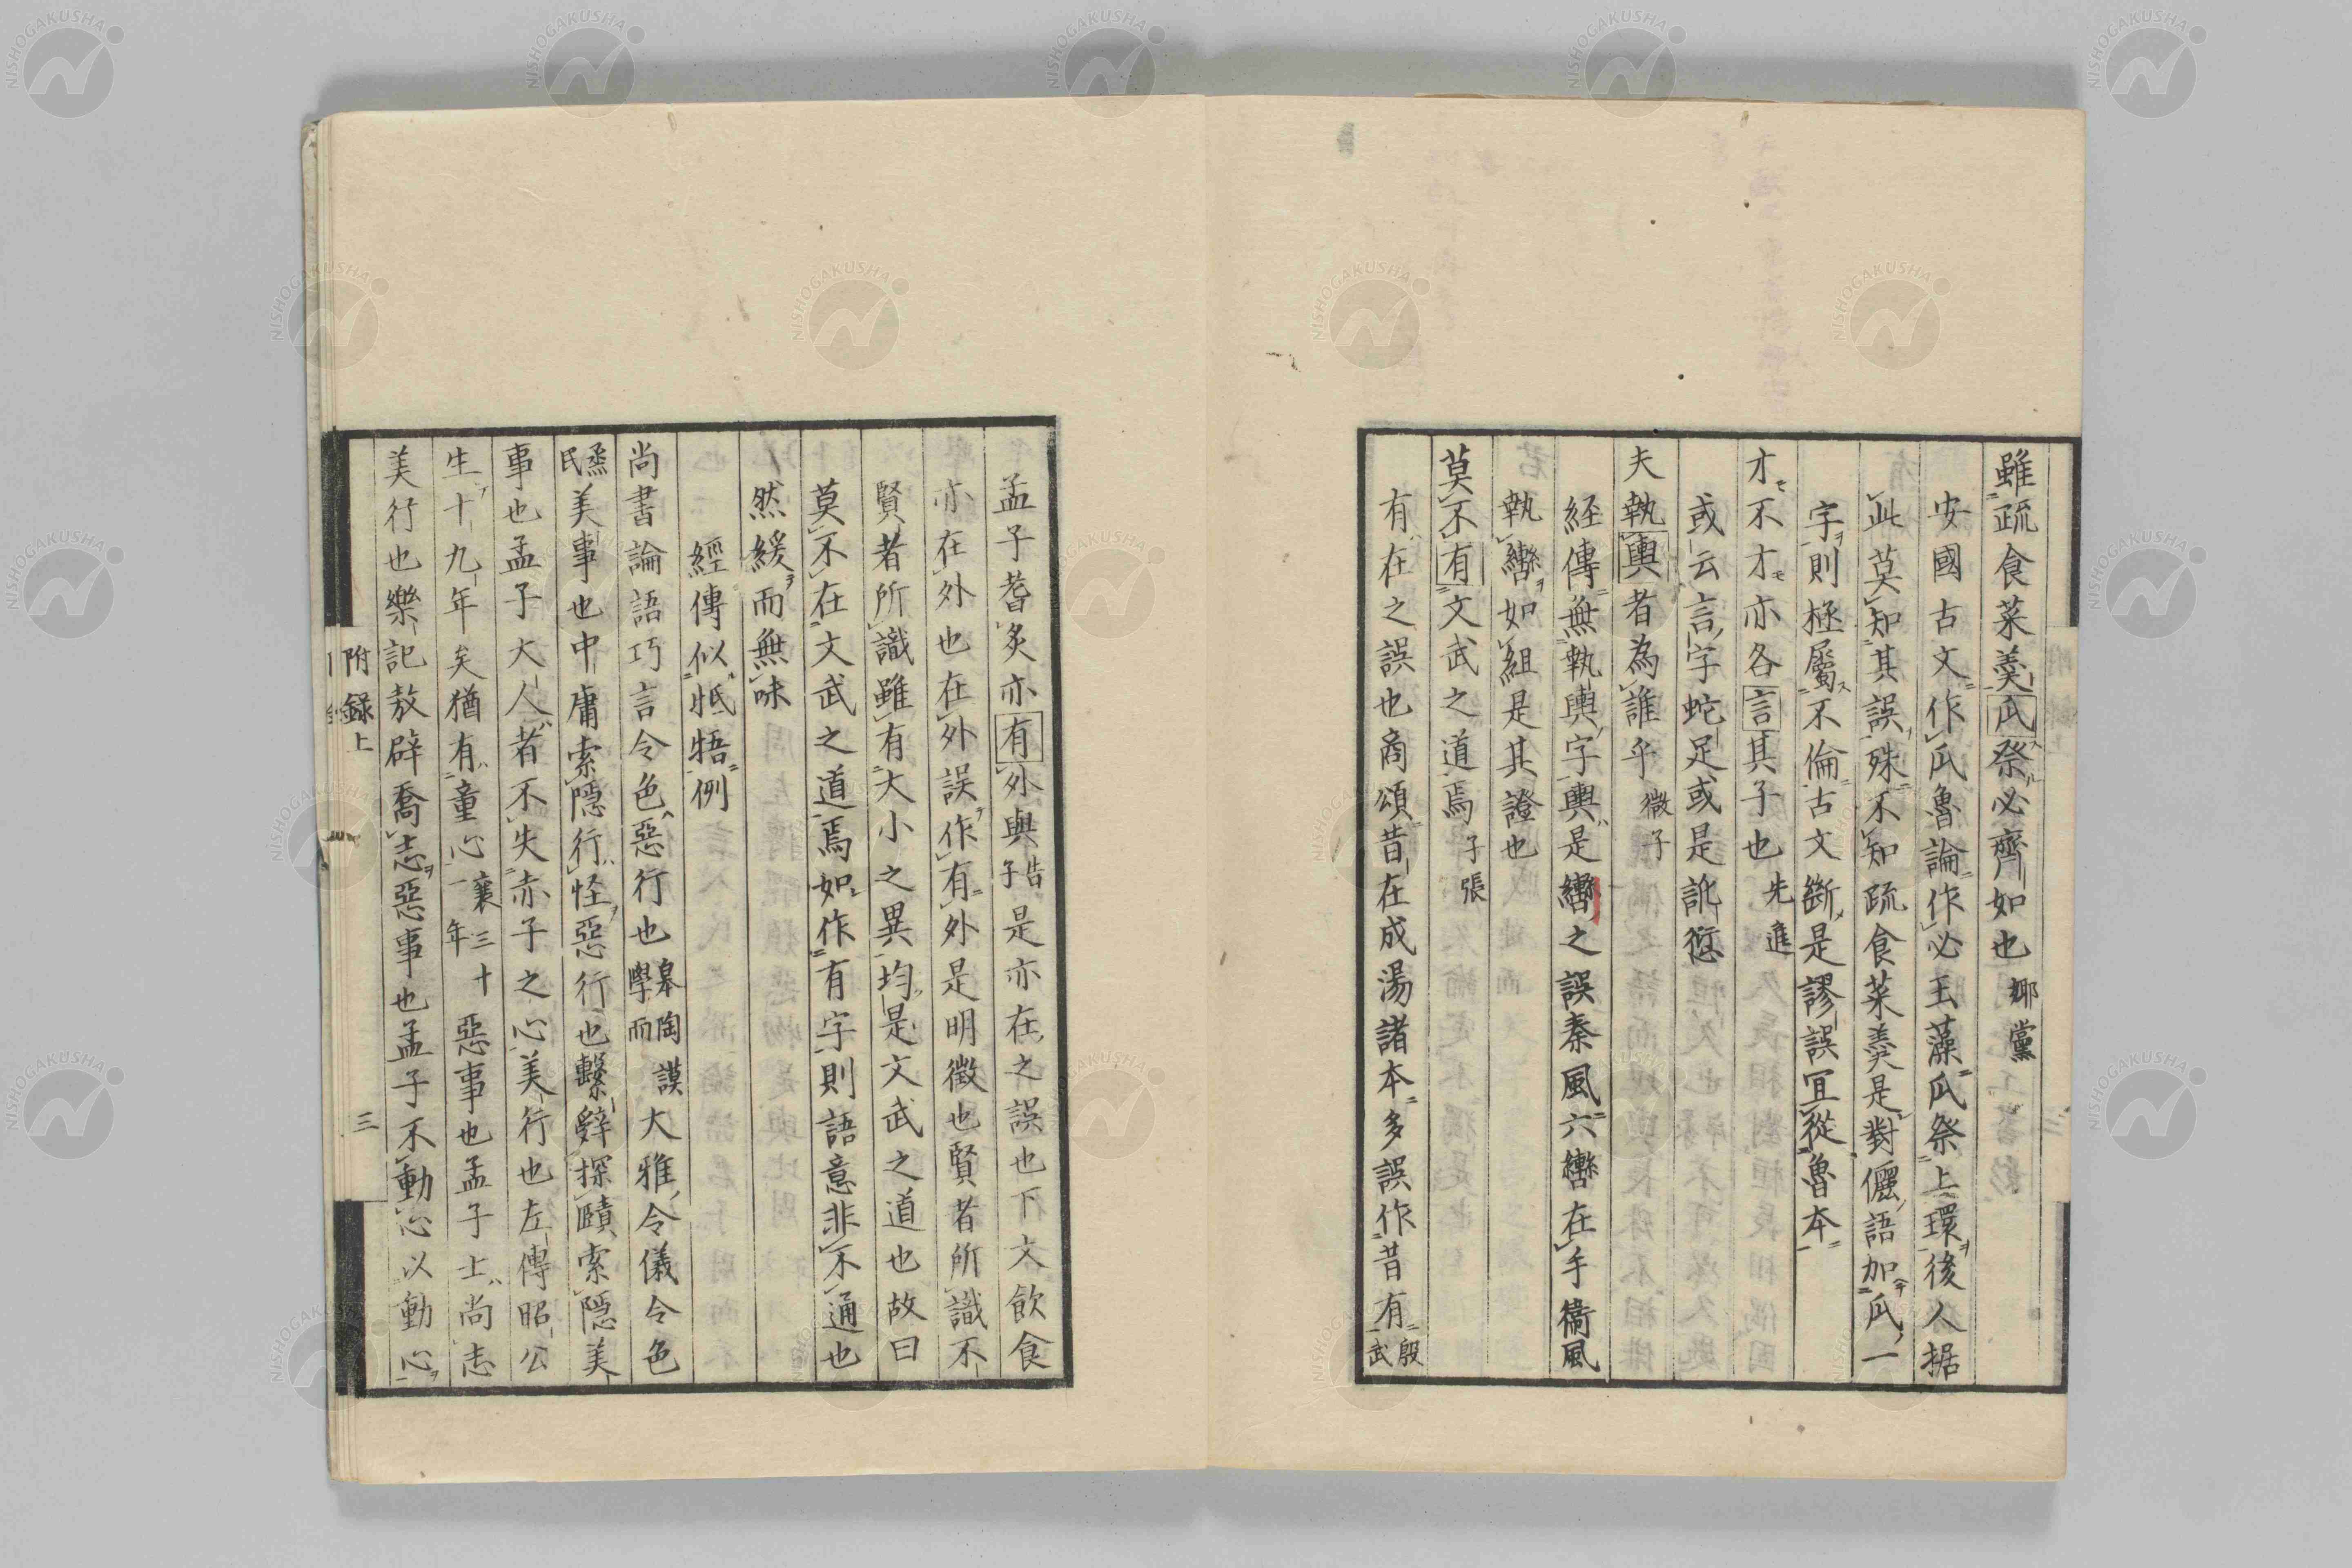 雖疏食菜羹瓜祭必齊如也鄉黨
安國古文作瓜魯論作必玉藻瓜祭上環後人据
此莫知其誤殊不知疏食菜羹是對儷語加瓜一
字則極屬不倫古文斷是謬誤宜從魯本
才不才亦各言其子也先進
或云言字蛇足或是訛衍
夫執輿者為誰乎微子
経傳無執輿字輿是轡之誤秦風六轡在手衞風
執轡如組是其證也
莫不有文武之道焉子張
有在之誤也商頌昔在成湯諸本多誤作昔有殷武
孟子耆炙亦有外與告子是亦在之誤也下文飲食
亦在外也在外誤作有外是明徵也賢者所識不
賢者所識雖有大小之異均是文武之道也故曰
莫不在文武之道焉如作有字則語意非不通也
然緩而無味
經傳似牴牾例
尚書論語巧言令色惡行也皋陶謨學而大雅令儀令色
烝民美事也中庸索隠行怪惡行也繫辭探賾索隠美
事也孟子大人者不失赤子之心美行也左傳昭公
生十九年矣猶有童心襄三十一年惡事也孟子士尚志
美行也樂記敖辟喬志惡事也孟子不動心以動心
附録上
三